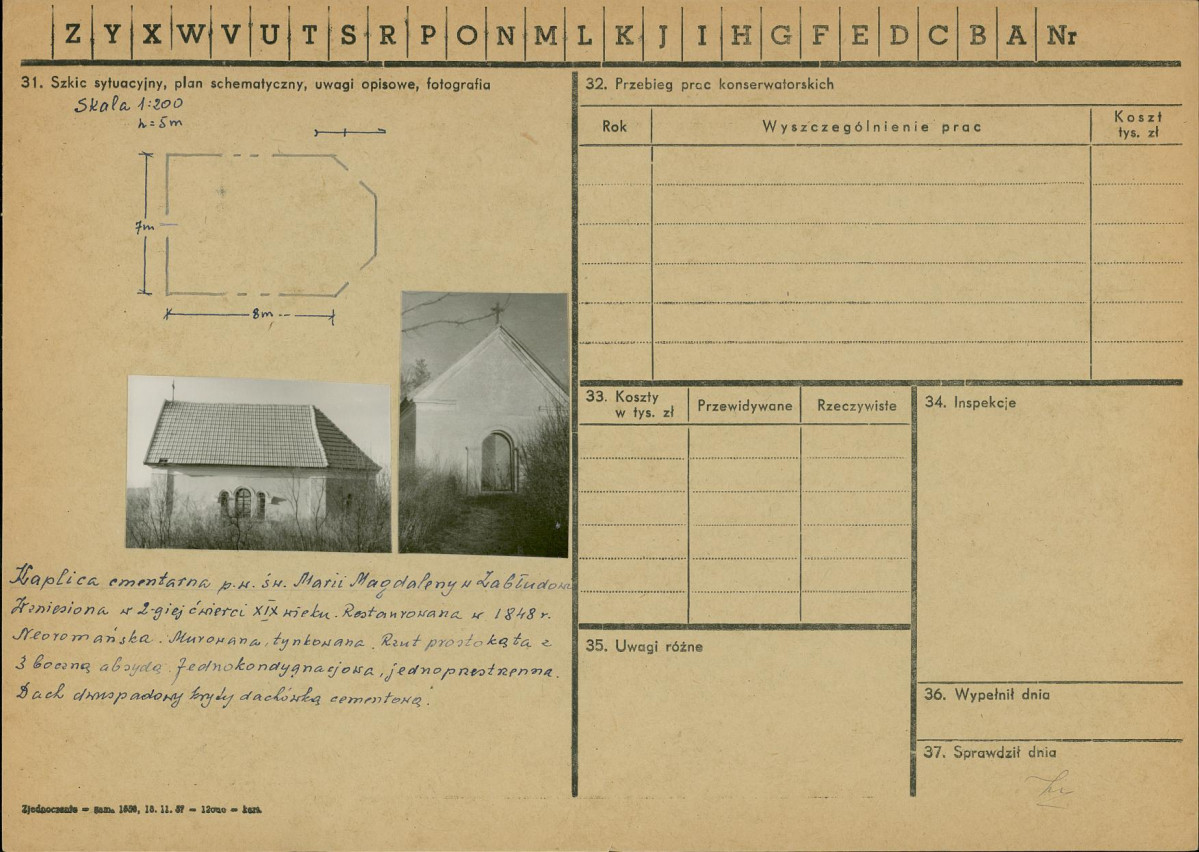 Z Y X W V U T S R P O N M L K J I H G F E D C B A Nr
31. Szkic sytuacyjny, plan schematyczny, uwagi opisowe, fotografia
Skala 1:200
h = 5m
7m
8m
Kaplica cmentarna p.w. św. Marii Magdaleny w Zabłudowie
Wzniesiona w 2-giej ćwierci XIX wieku. Restaurowana w 1848 r.
Neoromańska. Murowana, tynkowana. Rzut prostokąta z
3 boczną absydą. Jednokondygnacjowa, jednoprzestrzenna.
Dach dwuspadowy kryty dachówką cementową.
32. Przebieg prac konserwatorskich
Rok
Wyszczególnienie prac
Koszt
tys. zł
33. Koszty
w tys. zł
Przewidywane
Rzeczywiste
34. Inspekcje
35. Uwagi różne
36. Wypełnił dnia
37. Sprawdził dnia
Zjednoczenie — zam. 1550, 15. 11. 57 — 12000 — kart.